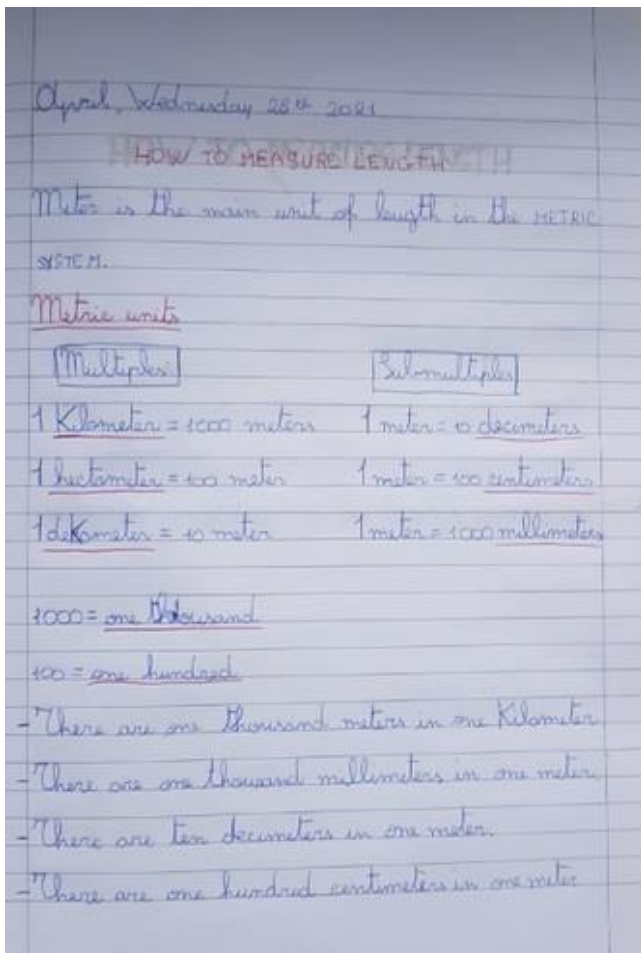 April, Wednesday 28th 2021
HOW TO MEASURE LENGTH
Meter is the main unit of length in the METRIC
SYSTEM.
Metric units
Multiples Submultiples
1 Kilometer = 1000 meters 1 meter = 10 decimeters
1 hectometer = 100 meter 1 meter = 100 centimeters
1 dekameter = 10 meter 1 meter = 1000 millimeters
1000 = one thousand
100 = one hundred
- There are one thousand meters in one Kilometer
- There are one thousand millimeters in one meter
- There are ten decimeters in one meter.
- There are one hundred centimeters in one meter